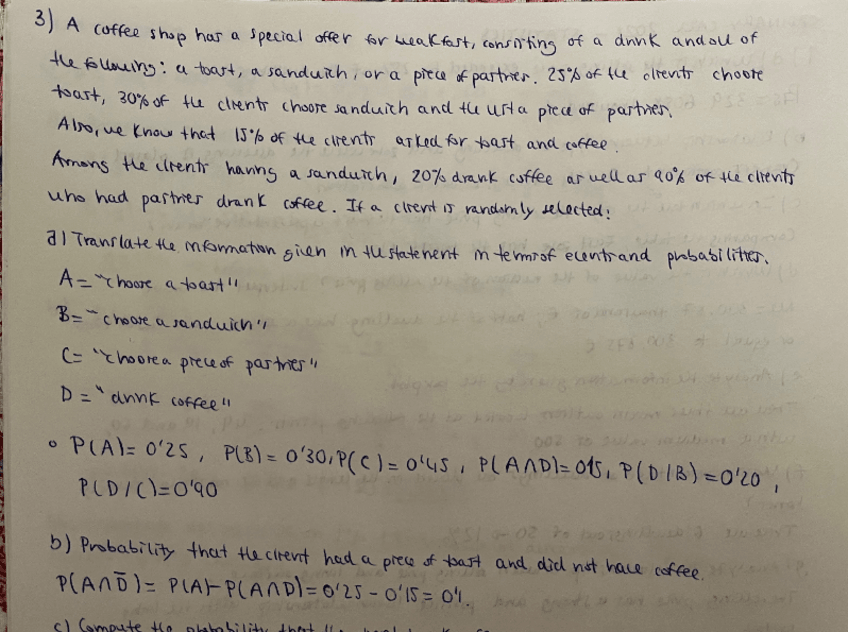 3) A coffee shop has a special offer for breakfast, consisting of a drink and one of
the following: a toast, a sandwich, or a piece of partries. 25% of the clients choose
toast, 30% of the clients choose sandwich and the rest a piece of partries.
Also, we know that 15% of the clients asked for toast and coffee.
Among the clients having a sandwich, 20% drank coffee as well as 90% of the clients
who had pastries drank coffee. If a client is randomly selected:
a) Translate the information given in the statement in terms of events and probabilities.
A = "choose a toast"
B = "choose a sandwich"
C = "choose a piece of partries"
D = "drink coffee"
∘ P(A) = 0'25, P(B) = 0'30, P(C) = 0'45, P(A∩D) = 0'15, P(D/B) = 0'20,
P(D/C) = 0'90
b) Probability that the client had a piece of toast and did not have coffee.
P(A∩D̄) = P(A) - P(A∩D) = 0'25 - 0'15 = 0'1.
c) Compute the probability that the